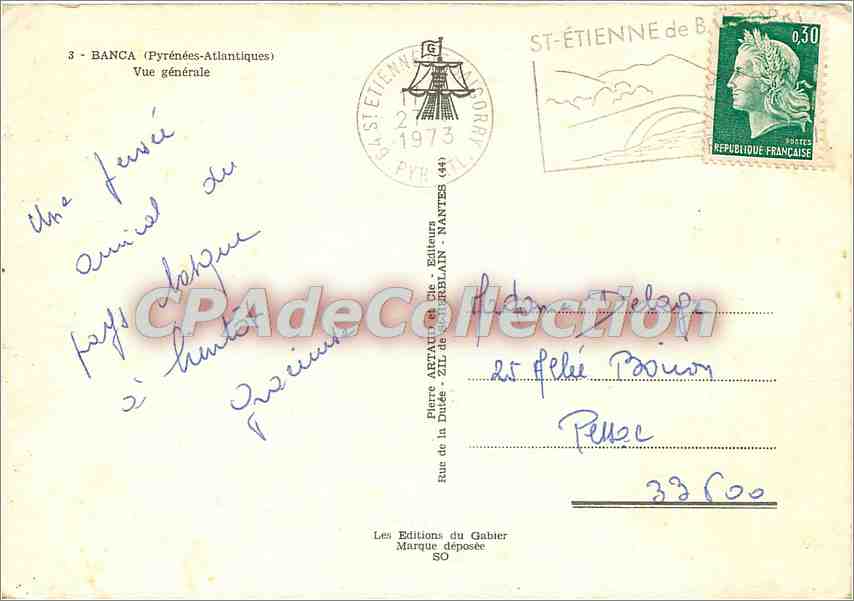 3 - BANCA (Pyrénées-Atlantiques)
Vue générale
Une pensée
amical du
pays basque
à bientôt
G
64 ST ETIENNE AIGORRY
27
1973
PYR ATL.
ST-ÉTIENNE de BAÏGORRY
0,30
POSTES
REPUBLIQUE FRANÇAISE
CPAdeCollection
Pierre ARTAUD et Cie - Editeurs
Rue de la Dutée - ZIL de ST-HERBLAIN - NANTES (44)
Madame Delage
25 Allée
Pessac
33600
Les Editions du Gabier
Marque déposée
SO